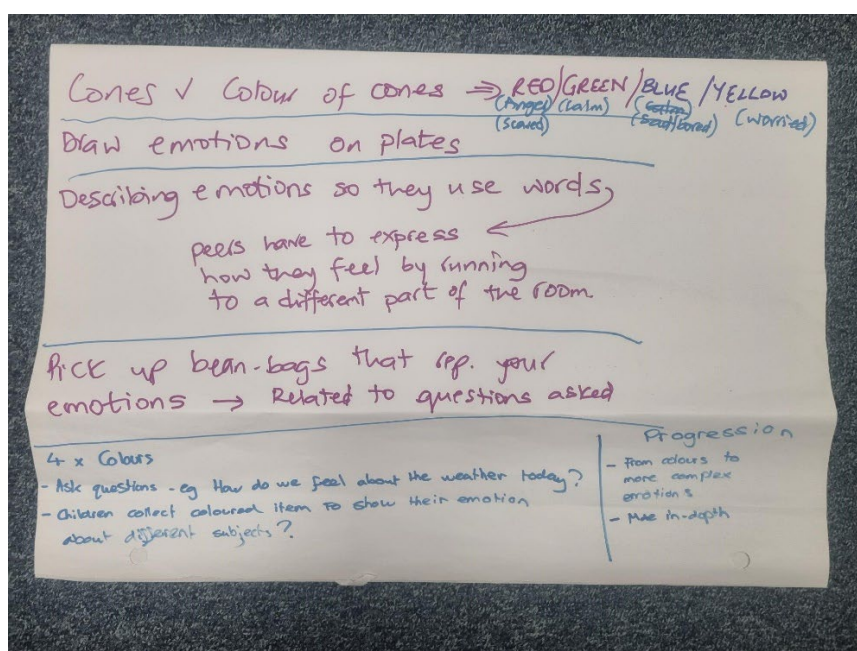 Cones ✓ Colour of cones ⇒ RED/GREEN/BLUE/YELLOW
(Anger) (Calm) (Calm) (Worried)
(Scared) (Sad/bored)
Draw emotions on plates
Describing emotions so they use words,
peers have to express
how they feel by running
to a different part of the room
Pick up bean-bags that rep. your
emotions → Related to questions asked
4 x Colours
- Ask questions - eg How do we feel about the weather today?
- Children collect coloured item to show their emotion
about different subjects?
Progression
- From colours to
more complex
emotions
- More in-depth